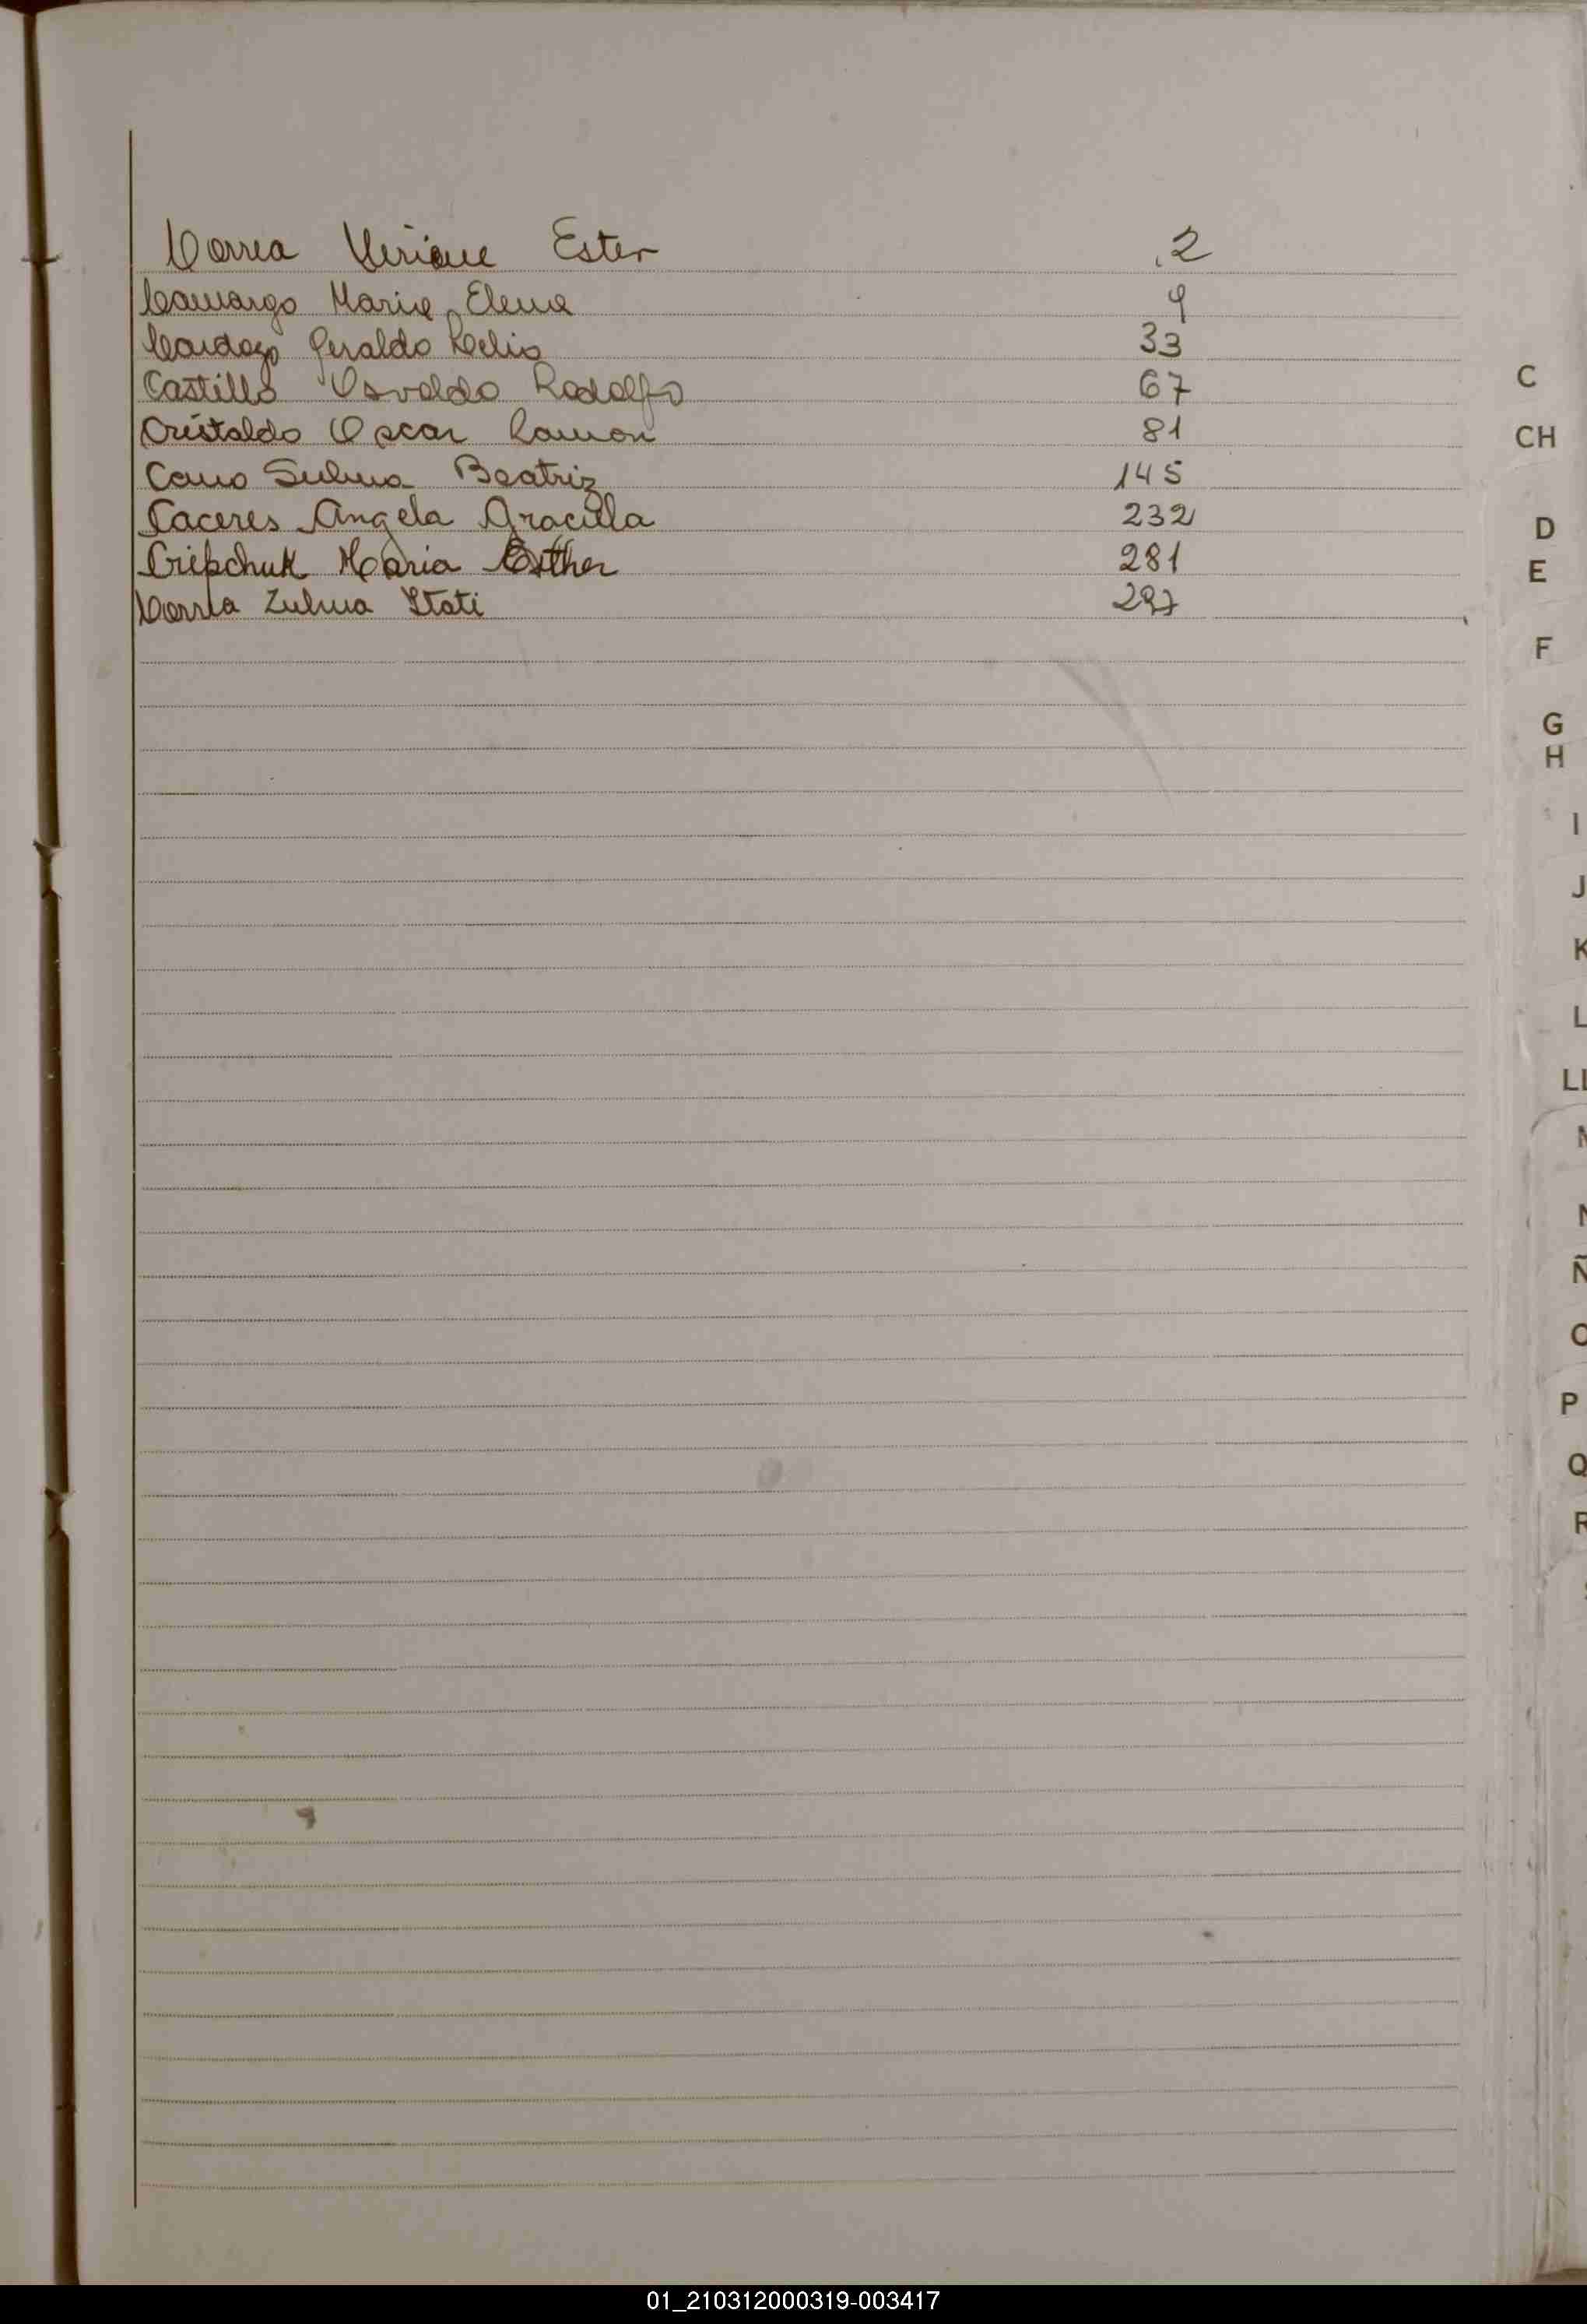 Correa Ester 2
Camargo Maria Elena 9
Cardozo Geraldo 33
Castillo Osvaldo Rodolfo 67
Cristaldo Oscar Ramon 81
Cano Sulma Beatriz 145
Caceres Angela Graciela 232
Cripchuk Maria Esther 281
Correa Zulma Itati 297
C
CH
D
E
F
G
H
I
J
K
L
LL
Ñ
O
P
Q
R
01_210312000319-003417